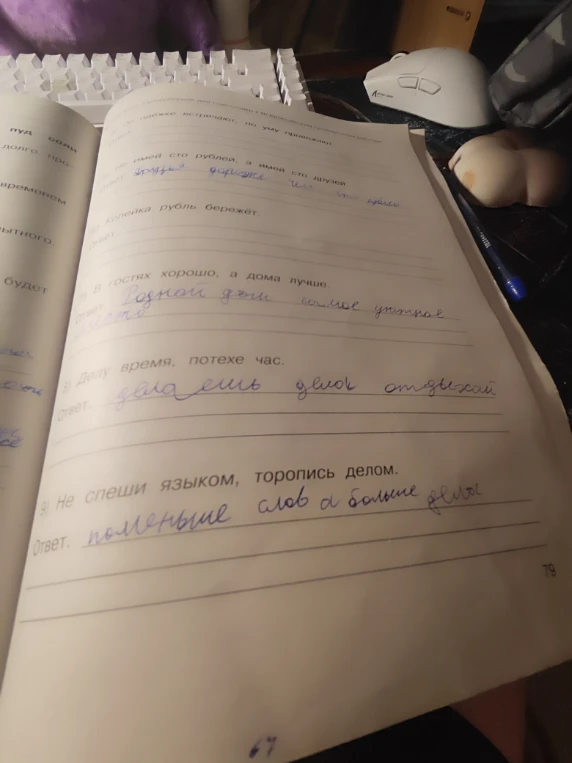 пуд соли
долго про-
временем
ытного.
будет
одёжке встречают, по уму провожают.
имей сто рублей, а имей сто друзей
дороже чем
Копейка рубль бережёт.
В гостях хорошо, а дома лучше.
Ответ. Родной дом самое уютное
место
Делу время, потехе час.
Ответ. делаешь делок отдыхай
Не спеши языком, торопись делом.
Ответ. поменьше слов а больше дела
79
67